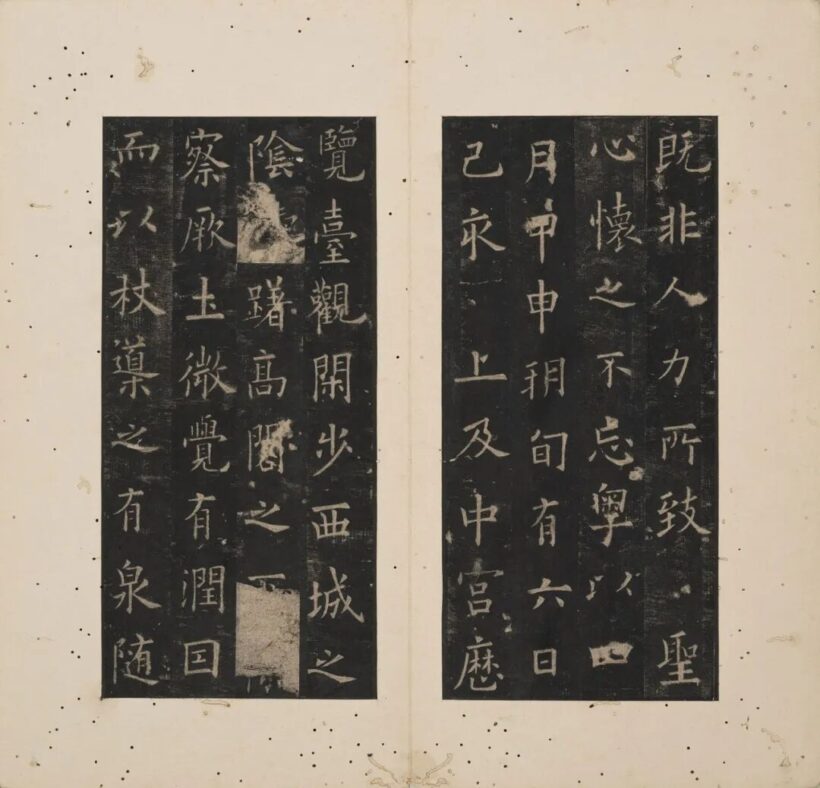 既非人力所致聖
心懷之不忘粵以四
月甲申朔旬有六日
己亥上及中宮歷
覽臺觀閑步西城之
陰躇高閣之
察厥土微覺有潤因
而以杖導之有泉随